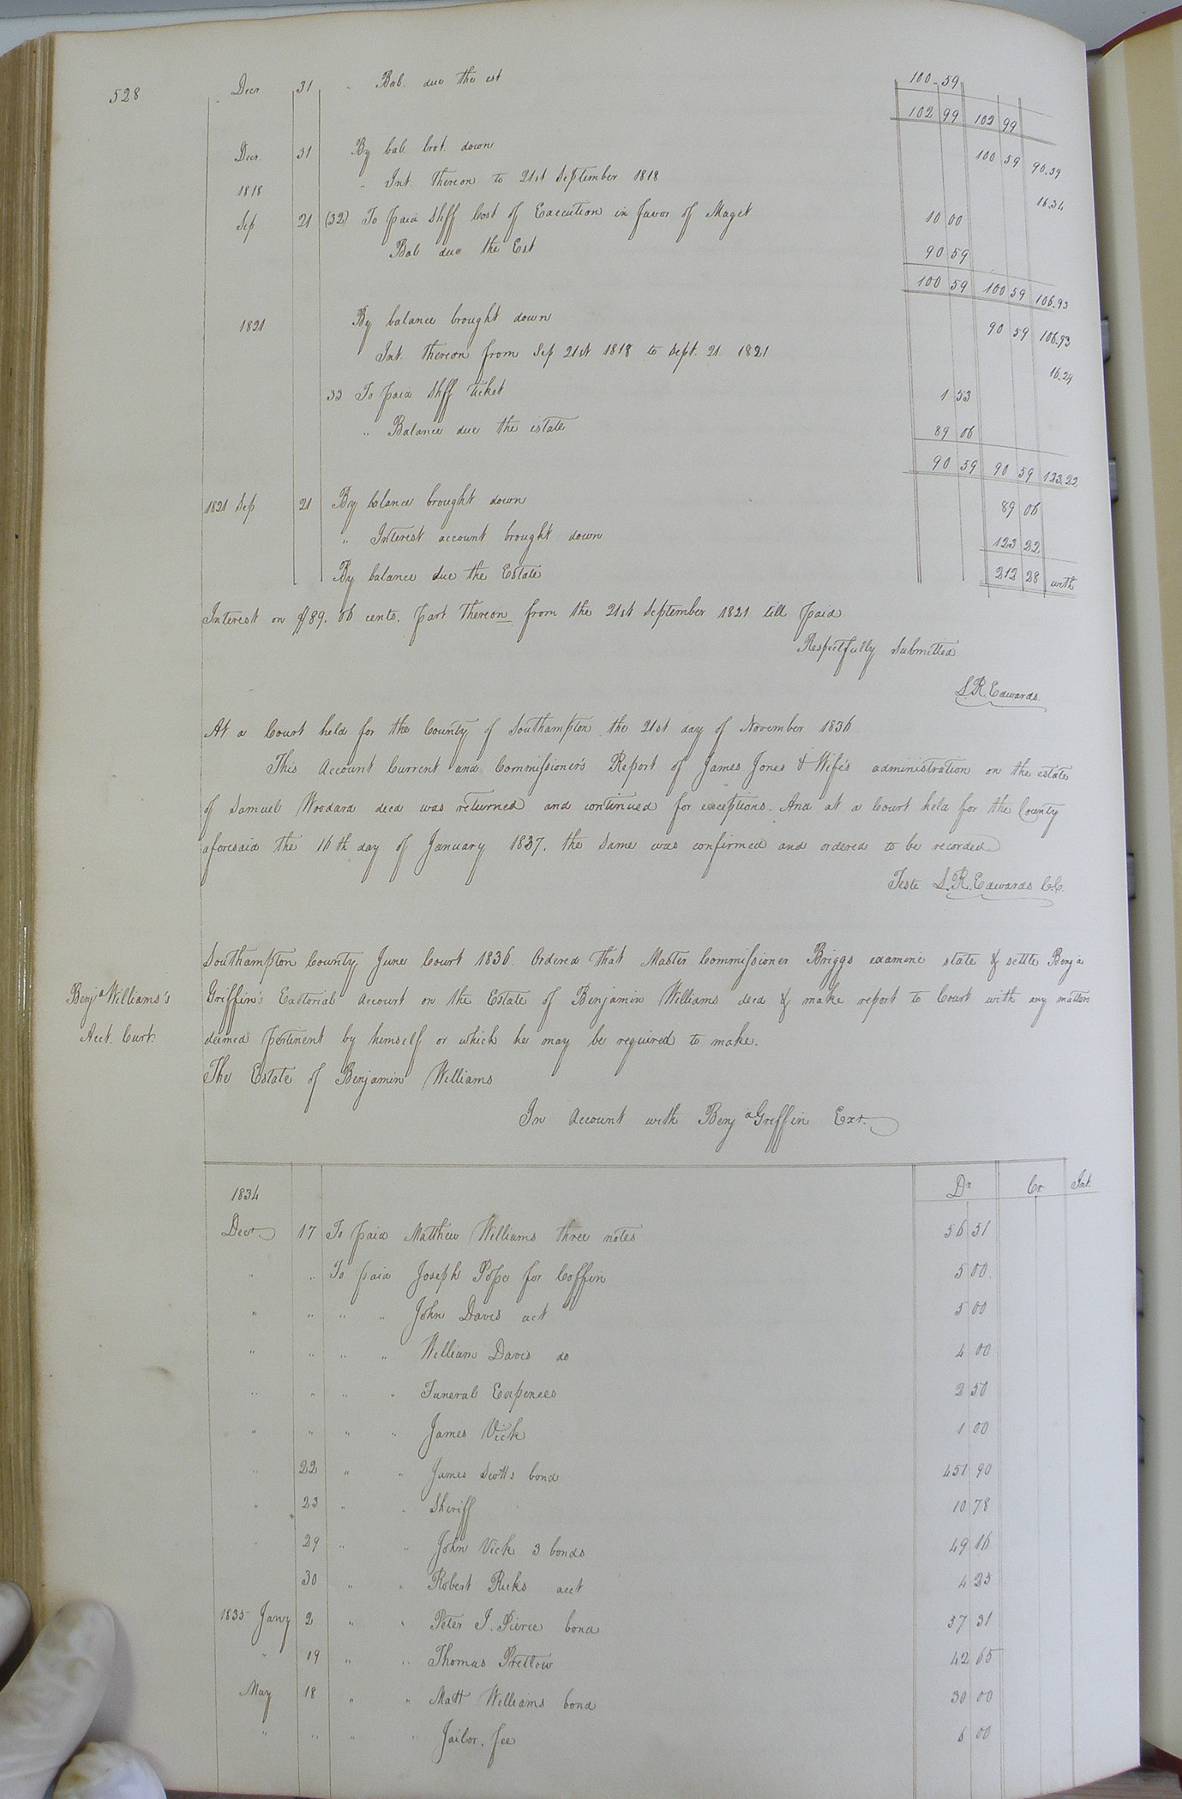 528 Decr. 31 " Bal. due the est 100.59
102 99 102 99
Decr. 31 By bal. brot. down 100 59 90.59
1818 " Int. thereon to 21st September 1818 16.34
Sep 21 (32) To paid Shff Cost of Execution in favor of Maget 10 00
Bal due the Est 90 59
100 59 100 59 106.93
1821 By balance brought down 90 59 106.93
Int. thereon from Sep 21st 1818 to Sept. 21 1821 16.29
33 To paid Shff ticket 1 53
" Balance due the estate 89 06
90 59 90 59 123.22
1821 Sep 21 By balance brought down 89 06
" Interest account brought down 123 22
By balance due the Estate 212 28 with
Interest on $89. 06 cents. part thereon from the 21st September 1821 till paid
Respectfully Submitted
L.R. Edwards.
At a Court held for the County of Southampton the 21st day of November 1836
This Account Current and Commissioner's Report of James Jones & Wife's administration on the estate
of Samuel Woodard decd was returned and continued for exceptions. And at a Court held for the County
aforesaid the 16th day of January 1837. the same was confirmed and ordered to be recorded
Teste L.R. Edwards C.C.
Southampton County June Court 1836 Ordered that Master Commissioner Briggs examine state & settle Benja
Benja Williams's Griffin's Exctorial Account on the Estate of Benjamin Williams decd & make report to Court with any matters
Acct. Curt. deemed pertinent by himself or which he may be required to make.
The Estate of Benjamin Williams
In Account with Benja Griffin Exr.
1834 Dr Cr Int.
Decr. 17 To paid Matthew Williams three notes 56 51
" " To paid Joseph Pope for Coffin 5 00
" " " " John Davis act 5 00
" " " " William Davis do 4 00
" " " " Funeral Expenses 2 50
" " " " James Vick 1 00
" 22 " " James Scotts bond 451 90
" 23 " " Sheriff 10 78
29 " " John Vick 3 bonds 49 16
30 " " Robert Ricks acct 4 23
1835 Jany 2 " " Peter J. Pierce bond 37 31
" 19 " " Thomas Pretlow 42 65
May 18 " " Matt Williams bond 30 00
" " " " Jailor. fee 00